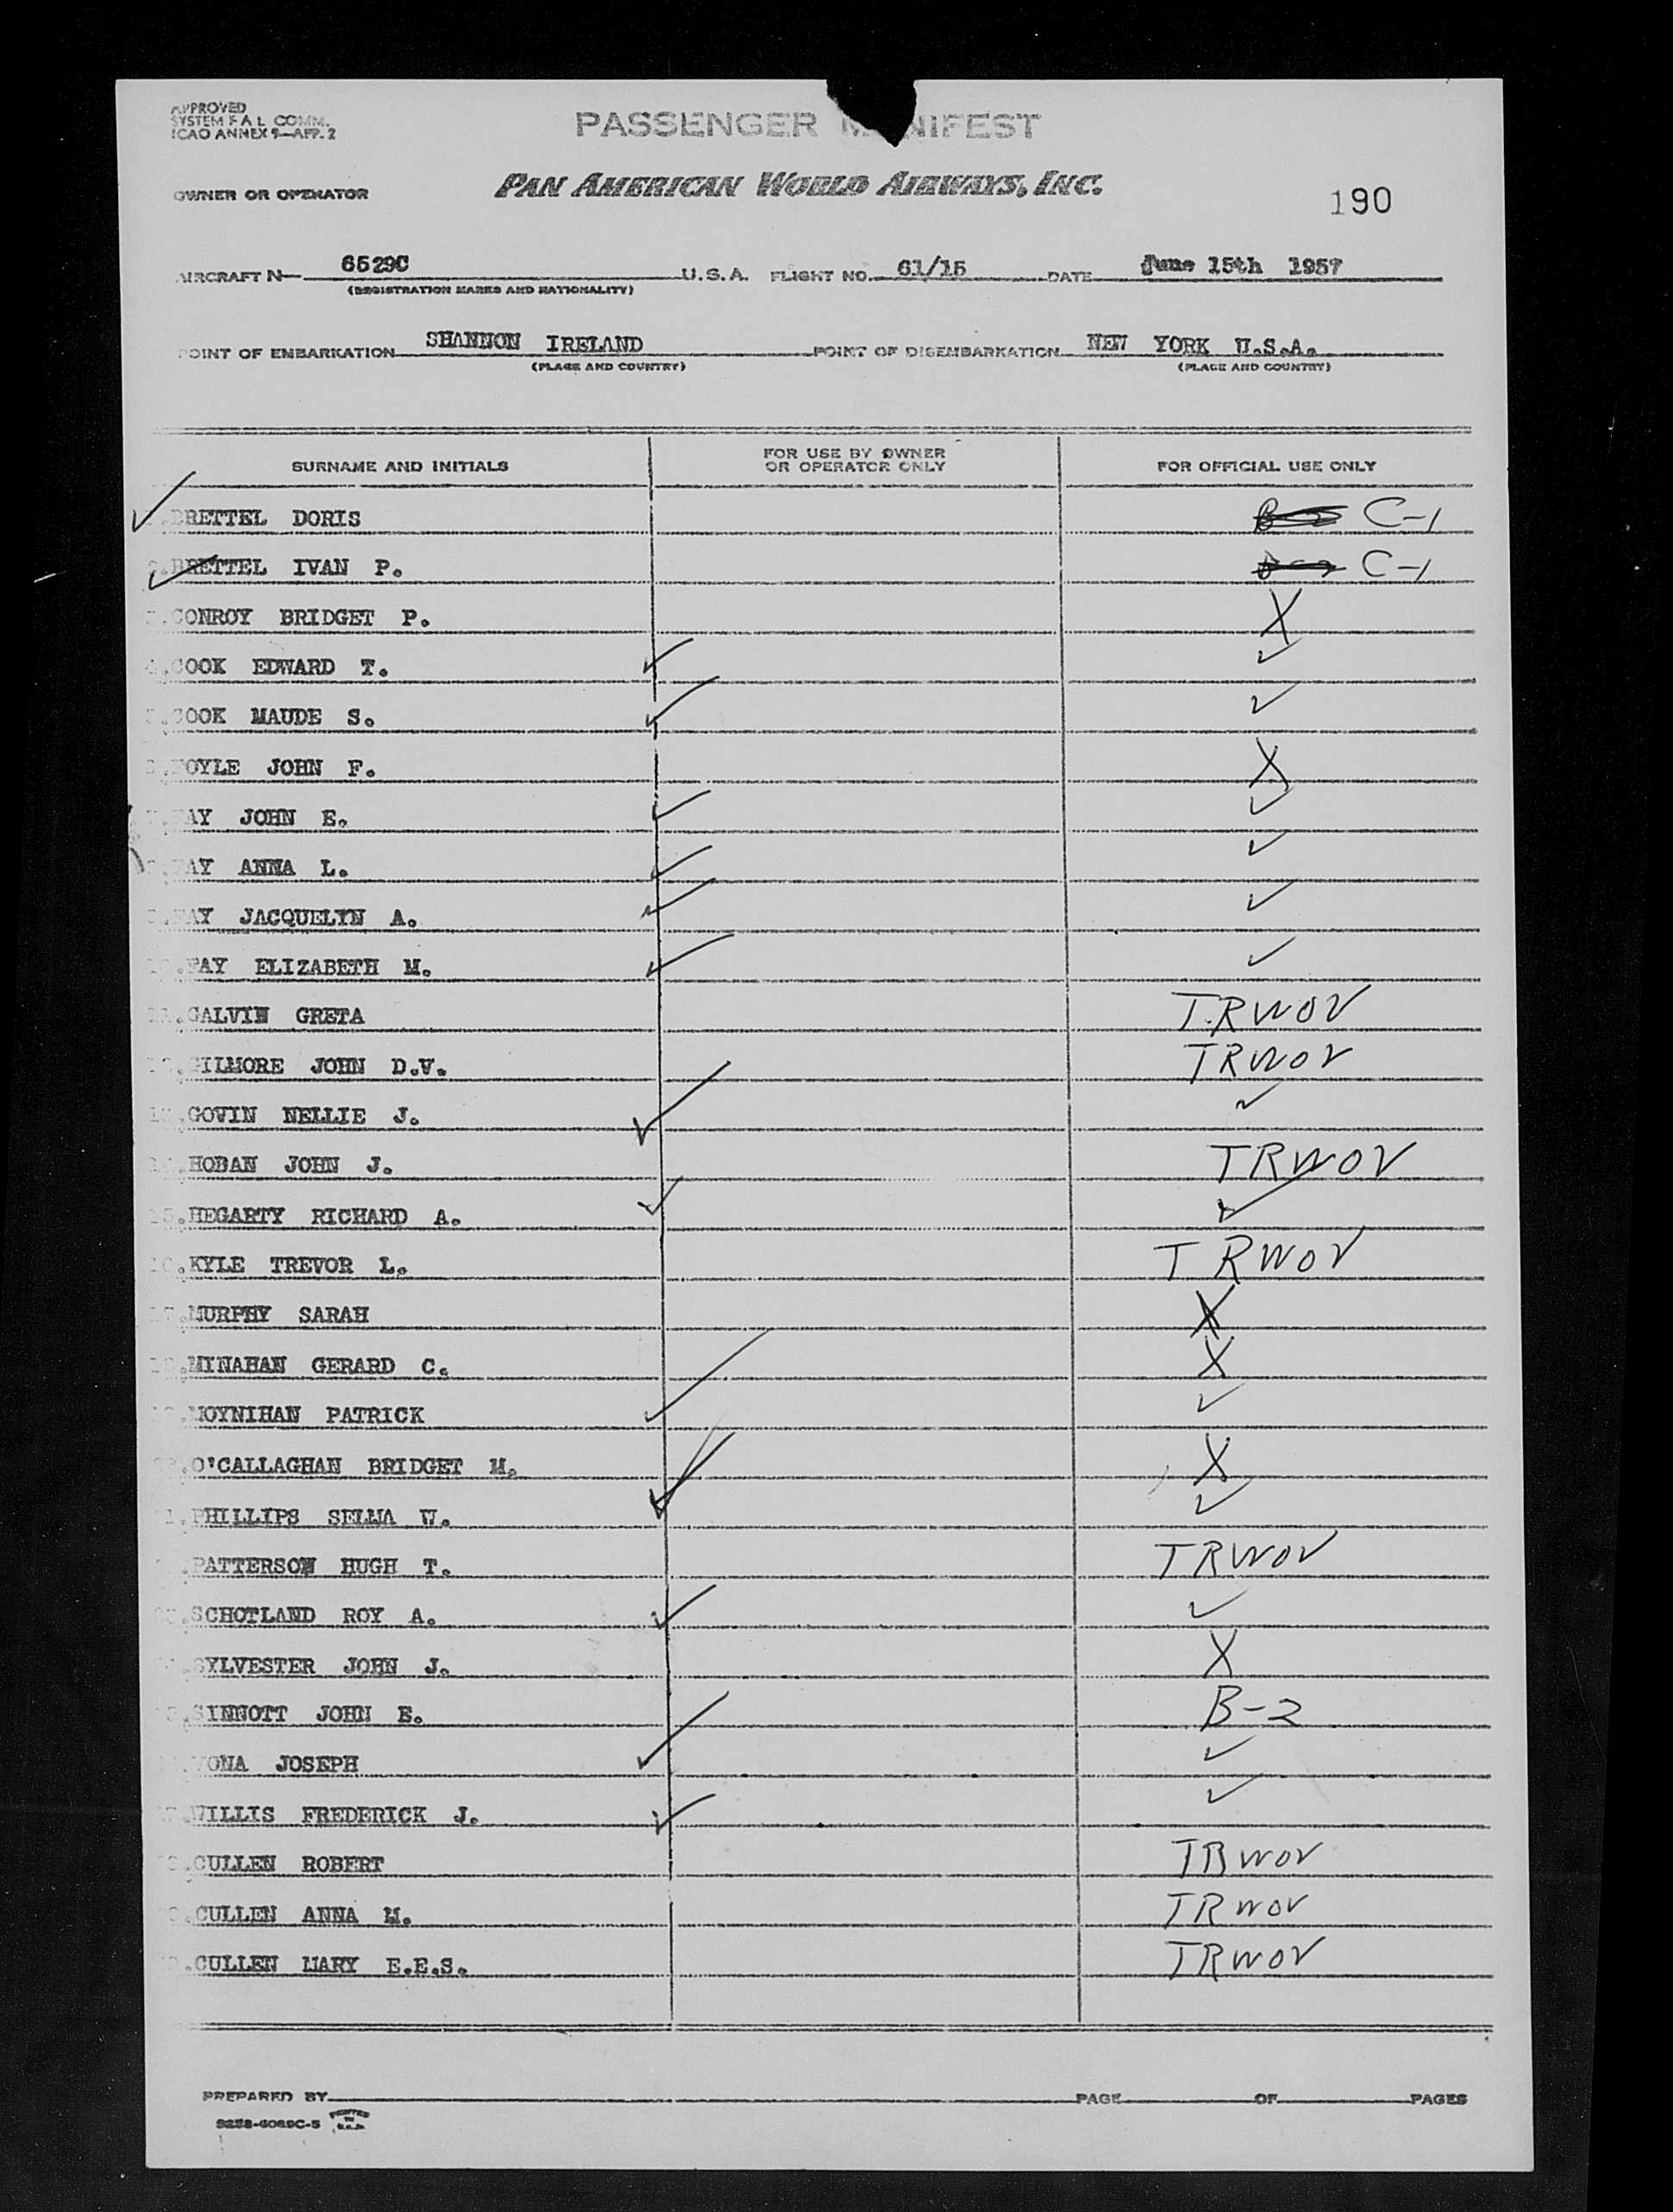 APPROVED
SYSTEM F A L COMM.
ICAO ANNEX 9—APP. 2
PASSENGER M NIFEST
OWNER OR OPERATOR PAN AMERICAN WORLD AIRWAYS, INC.
190
AIRCRAFT N— 6529C U.S.A. FLIGHT NO. 61/15 DATE June 15th 1957
(REGISTRATION MARKS AND NATIONALITY)
POINT OF EMBARKATION SHANNON IRELAND POINT OF DISEMBARKATION NEW YORK U.S.A.
(PLACE AND COUNTRY) (PLACE AND COUNTRY)
SURNAME AND INITIALS FOR USE BY OWNER OR OPERATOR ONLY FOR OFFICIAL USE ONLY
✓ .BRETTEL DORIS C-1
✓ .BRETTEL IVAN P. C-1
.CONROY BRIDGET P. X
.COOK EDWARD T. ✓ ✓
.COOK MAUDE S. ✓ ✓
OYLE JOHN F. X
.FAY JOHN E. ✓ ✓
.FAY ANNA L. ✓ ✓
.FAY JACQUELYN A. ✓ ✓
.FAY ELIZABETH M. ✓ ✓
11.GALVIN GRETA TRWOV
.GILMORE JOHN D.V. TRWOV
13.GOVIN NELLIE J. ✓ ✓
14.HOBAN JOHN J. TRWOV
15.HEGARTY RICHARD A. ✓ ✓
16.KYLE TREVOR L. TRWOV
17.MURPHY SARAH X
18.MINAHAN GERARD C. X
.MOYNIHAN PATRICK ✓ ✓
.O'CALLAGHAN BRIDGET M. X
.PHILLIPS SELMA W. ✓ ✓
.PATTERSON HUGH T. TRWOV
.SCHOTLAND ROY A. ✓ ✓
.SYLVESTER JOHN J. X
.SINNOTT JOHN E. B-2
.VONA JOSEPH ✓ ✓
.WILLIS FREDERICK J. ✓ ✓
.CULLEN ROBERT TRWOV
.CULLEN ANNA M. TRWOV
.CULLEN MARY E.E.S. TRWOV
PREPARED BY PAGE OF PAGES
PRINTED IN U.S.A.